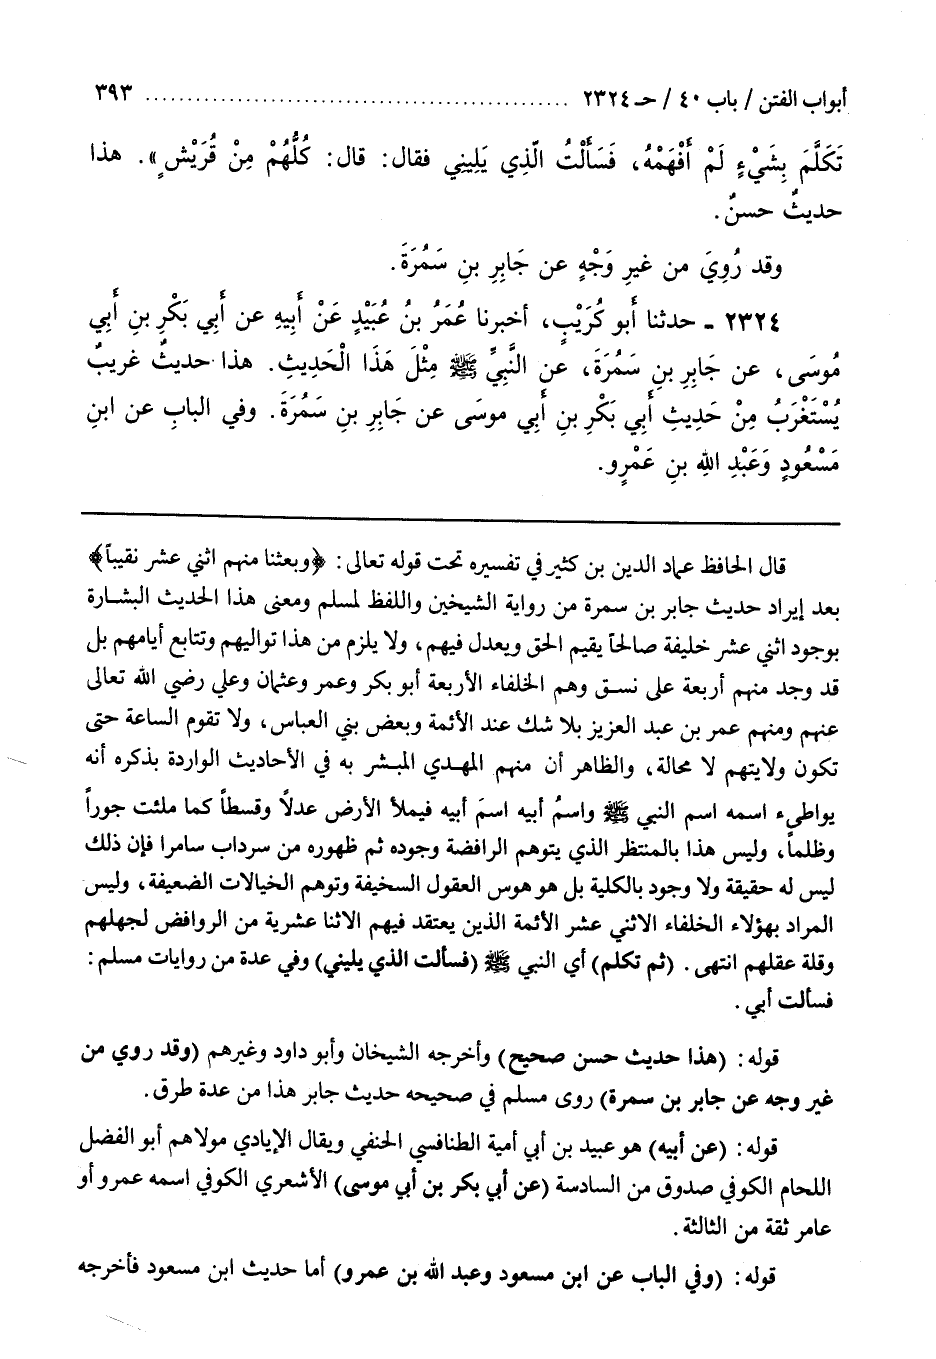 أبواب الفتن / باب ٤٠ / حـ ٢٣٢٤ ................................................ ٣٩٣
تَكَلَّمَ بِشَيْءٍ لَمْ أَفْهَمْهُ، فَسَأَلْتُ الَّذِي يَلِينِي فقال: قال: كُلُّهُمْ مِنْ قُرَيْشٍ». هذا
حديثٌ حسنٌ.
وقد رُوِيَ من غيرِ وَجْهٍ عن جَابِرِ بنِ سَمُرَةَ.
٢٣٢٤ ـ حدثنا أَبو كُرَيْبٍ، أخبرنا عُمَرُ بنُ عُبَيْدٍ عَنْ أَبِيهِ عن أَبي بَكْرِ بنِ أَبي
مُوسَى، عن جَابِرِ بنِ سَمُرَةَ، عن النَّبيِّ ﷺ مِثْلَ هَذَا الْحَدِيثِ. هذا حديثٌ غريبٌ
يُسْتَغْرَبُ مِنْ حَدِيثِ أَبِي بَكْرِ بنِ أَبي موسَى عن جَابِرِ بنِ سَمُرَةَ. وفي البابِ عن ابنِ
مَسْعُودٍ وَعَبْدِ اللهِ بنِ عَمْرٍو.
قال الحافظ عماد الدين بن كثير في تفسيره تحت قوله تعالى: ﴿وبعثنا منهم اثني عشر نقيباً﴾
بعد إيراد حديث جابر بن سمرة من رواية الشيخين واللفظ لمسلم ومعنى هذا الحديث البشارة
بوجود اثني عشر خليفة صالحاً يقيم الحق ويعدل فيهم، ولا يلزم من هذا تواليهم وتتابع أيامهم بل
قد وجد منهم أربعة على نسق وهم الخلفاء الأربعة أبو بكر وعمر وعثمان وعلي رضي الله تعالى
عنهم ومنهم عمر بن عبد العزيز بلا شك عند الأئمة وبعض بني العباس، ولا تقوم الساعة حتى
تكون ولايتهم لا محالة، والظاهر أن منهم المهدي المبشر به في الأحاديث الواردة بذكره أنه
يواطىء اسمه اسم النبي ﷺ واسمُ أبيه اسمَ أبيه فيملأ الأرض عدلاً وقسطاً كما ملئت جوراً
وظلماً، وليس هذا بالمنتظر الذي يتوهم الرافضة وجوده ثم ظهوره من سرداب سامرا فإن ذلك
ليس له حقيقة ولا وجود بالكلية بل هو هوس العقول السخيفة وتوهم الخيالات الضعيفة، وليس
المراد بهؤلاء الخلفاء الاثني عشر الأئمة الذين يعتقد فيهم الاثنا عشرية من الروافض لجهلهم
وقلة عقلهم انتهى. (ثم تكلم) أي النبي ﷺ (فسألت الذي يليني) وفي عدة من روايات مسلم:
فسألت أبي.
قوله: (هذا حديث حسن صحيح) وأخرجه الشيخان وأبو داود وغيرهم (وقد روي من
غير وجه عن جابر بن سمرة) روى مسلم في صحيحه حديث جابر هذا من عدة طرق.
قوله: (عن أبيه) هو عبيد بن أبي أمية الطنافسي الحنفي ويقال الإيادي مولاهم أبو الفضل
اللحام الكوفي صدوق من السادسة (عن أبي بكر بن أبي موسى) الأشعري الكوفي اسمه عمرو أو
عامر ثقة من الثالثة.
قوله: (وفي الباب عن ابن مسعود وعبد الله بن عمرو) أما حديث ابن مسعود فأخرجه